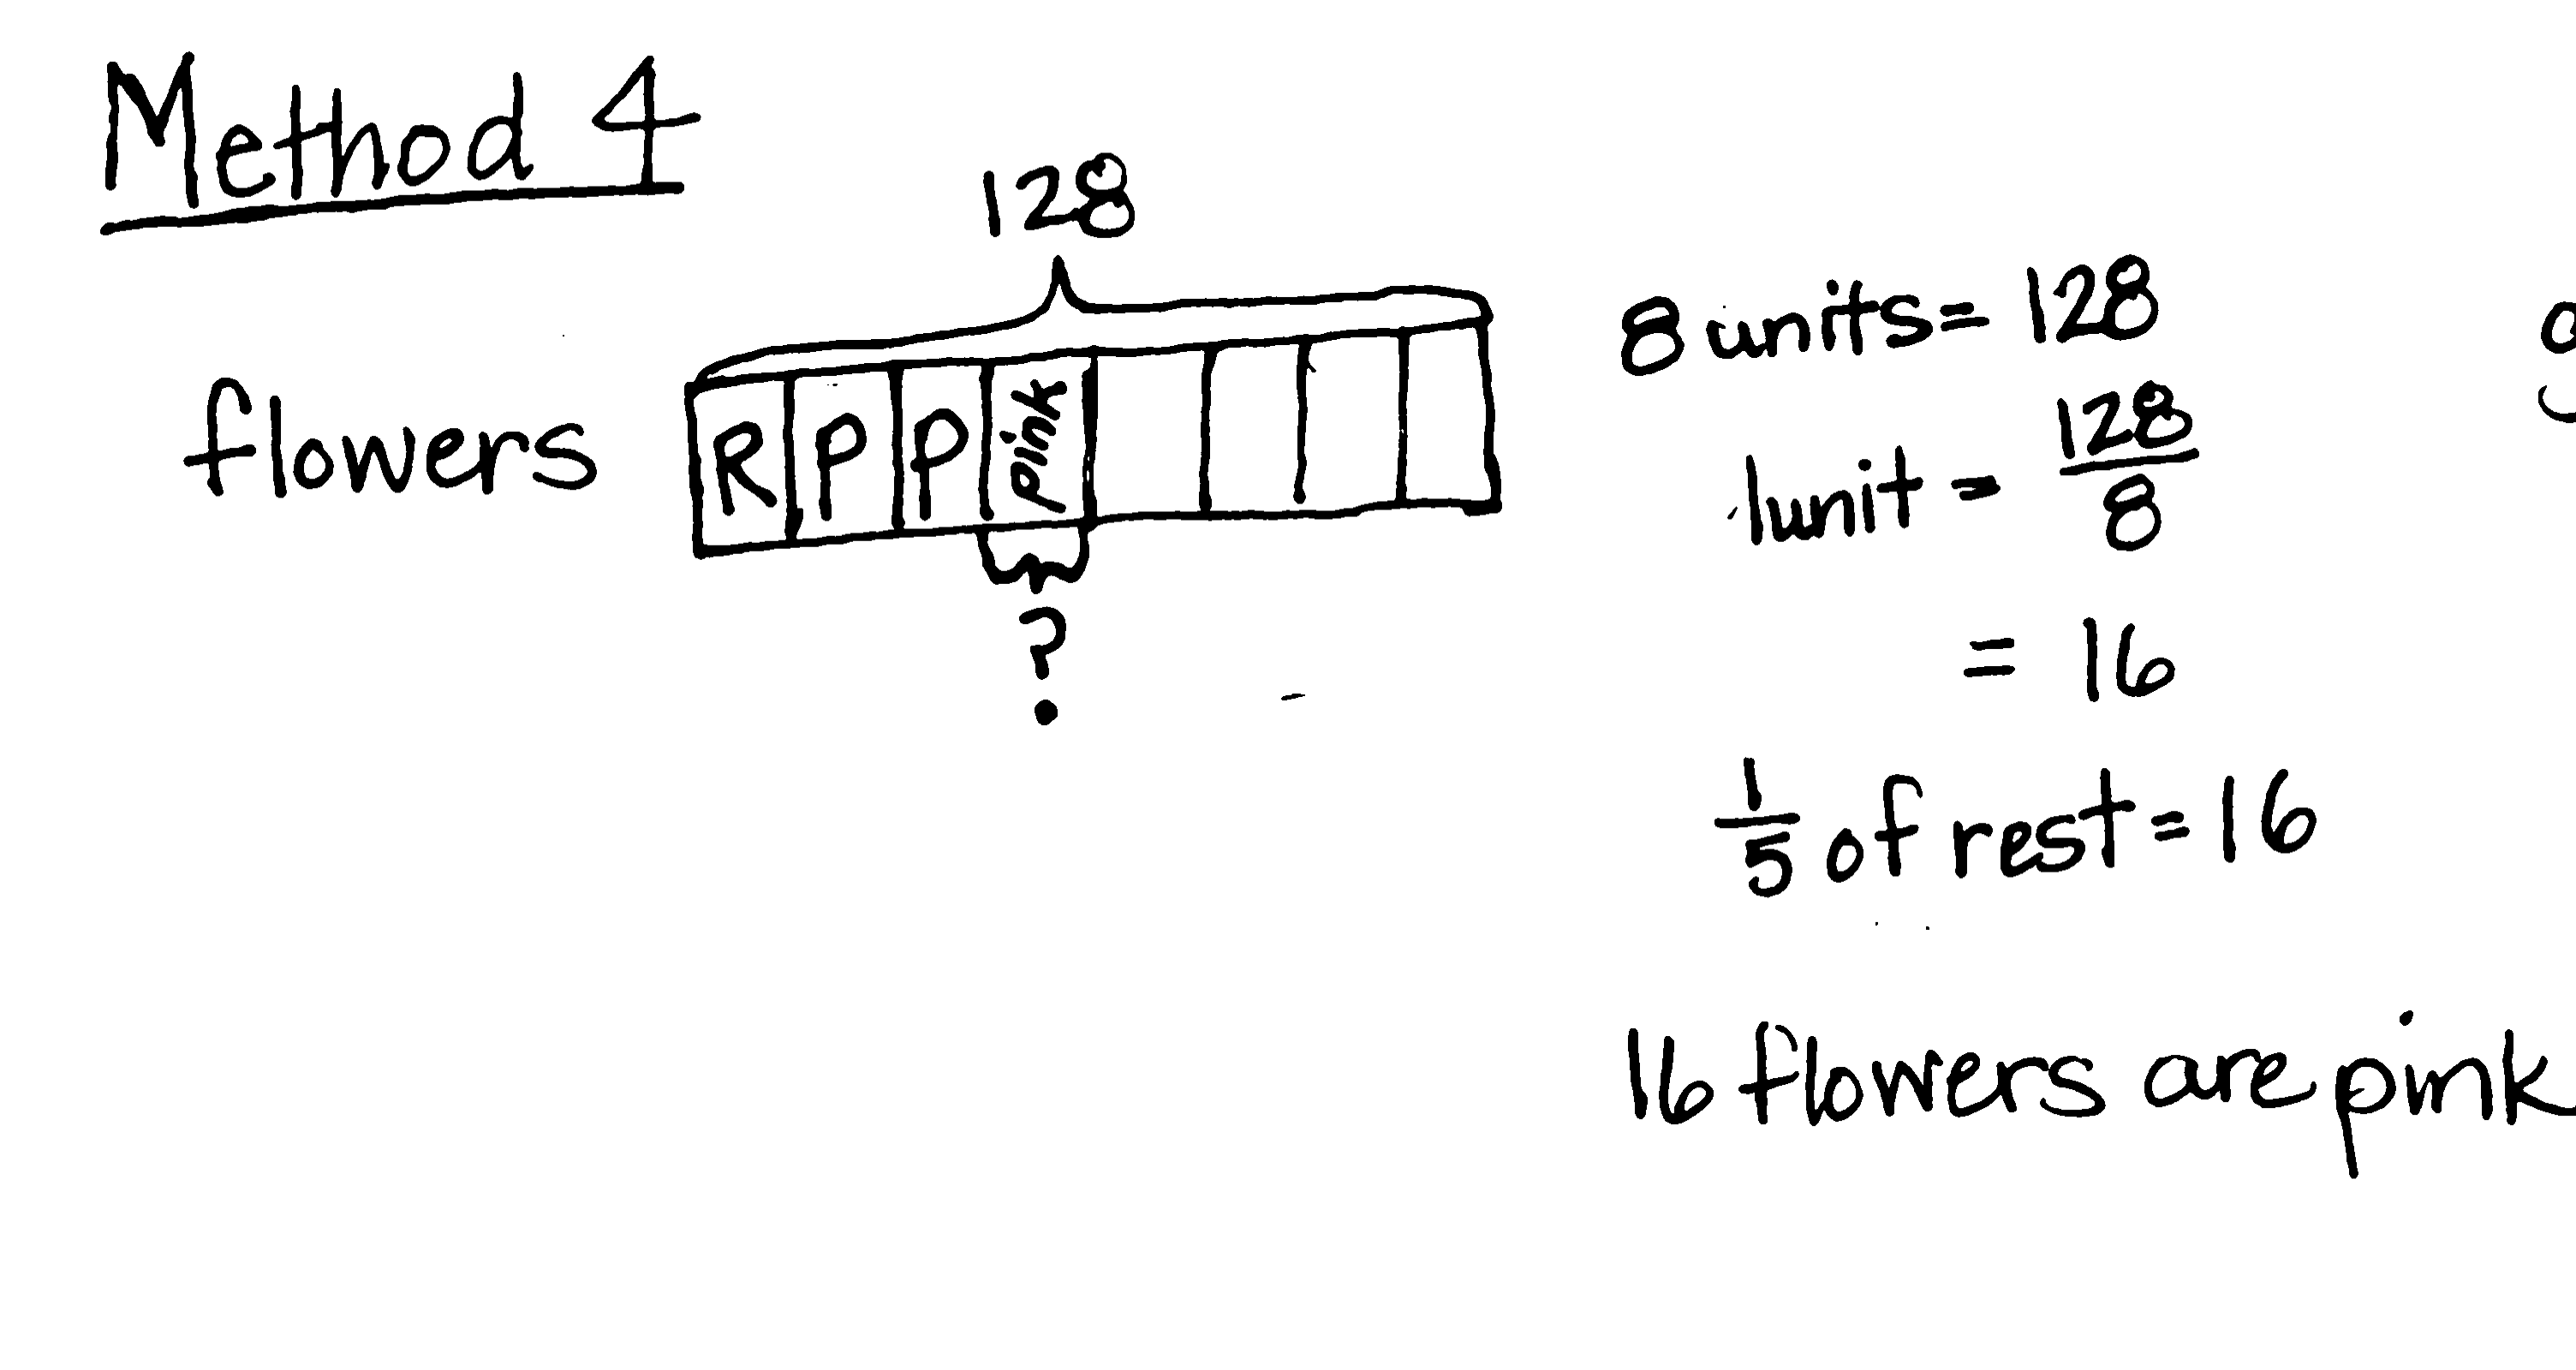 Method 4
128
flowers
R P P pink
?
8 units = 128
1 unit = 128/8
= 16
1/5 of rest = 16
16 flowers are pink